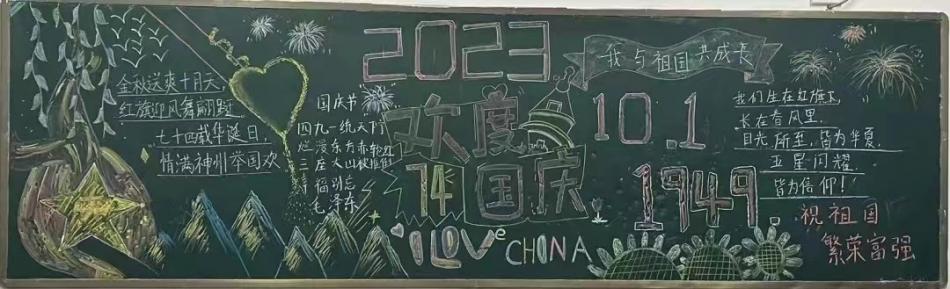 金秋送爽十月天,
红旗迎风舞翩跹
七十四载华诞日
情满神州举国欢
国庆节
2023
欢度
74国庆
I LOVe CHINA
我与祖国共成长
10.1
1949.
我们生在红旗下
长在春风里
目光所至,皆为华夏
五星闪耀
皆为信仰!
祝祖国
繁荣富强